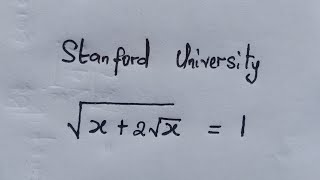 Stanford University
√(x + 2√x) = 1